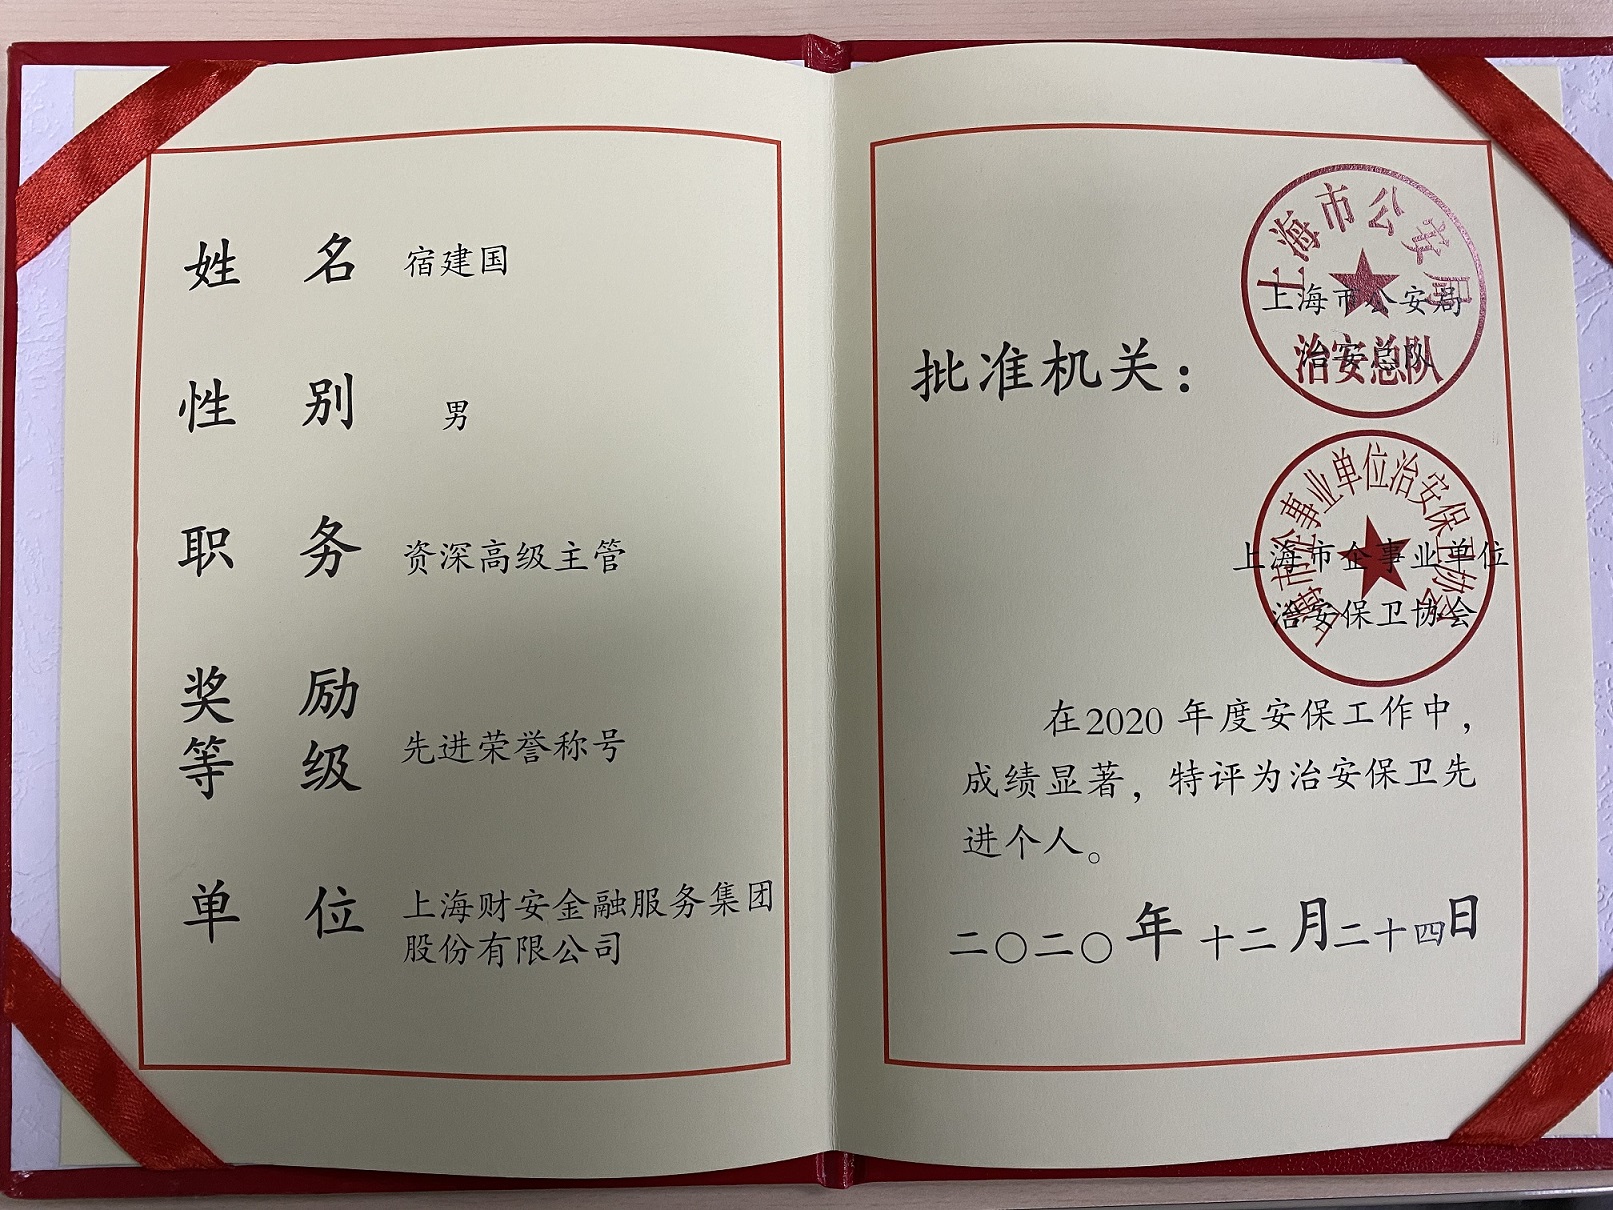 姓 名 宿建国
性 别 男
职 务 资深高级主管
奖 励
等 级 先进荣誉称号
单 位 上海财安金融服务集团
股份有限公司
上海市公安局
治安总队
批准机关：
上海市公安局
治安总队
上海市企事业单位治安保卫协会
上海市企事业单位
治安保卫协会
在2020 年度安保工作中，
成绩显著，特评为治安保卫先
进个人。
二〇二〇年十二月二十四日